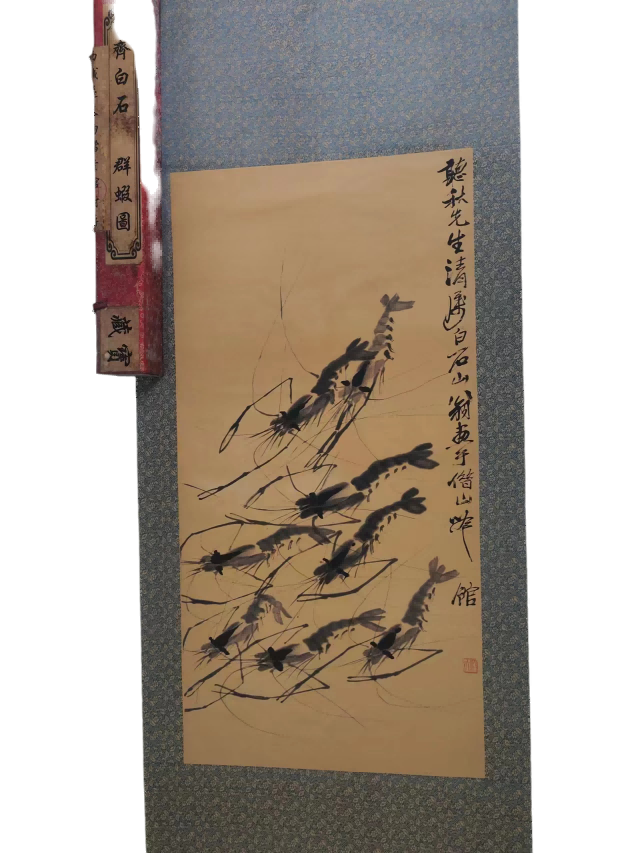 齊白石 群蝦圖
寶藏
聽秋先生清屬白石山翁畫于借山吟
館